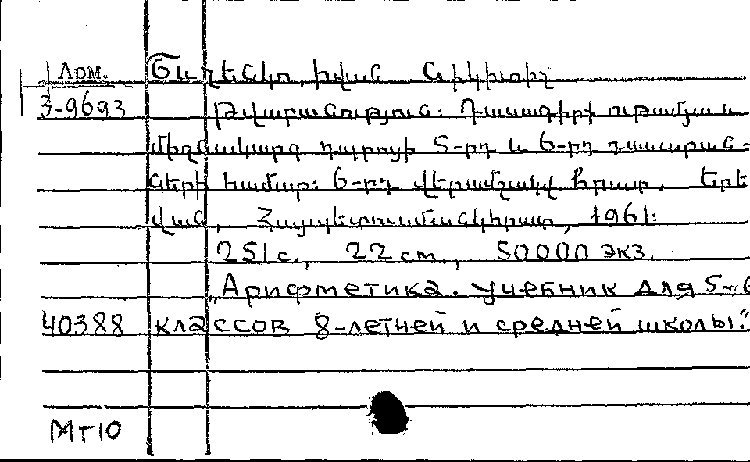 Лрм. Շևչենկո, Իվան Նիկիտիչ
3-9693 Թվաբանություն: Դասագիրք ութամյա և
միջնակարգ դպրոցի 5-րդ և 6-րդ դասարան-
ների համար: 6-րդ վերամշակվ. հրատ. Երե
վան, Հայպետուսմանկհրատ, 1961:
251с., 22 см., 50000 экз.
„Арифметика. Учебник для 5-6
40388 классов 8-летней и средней школы."
МТ10